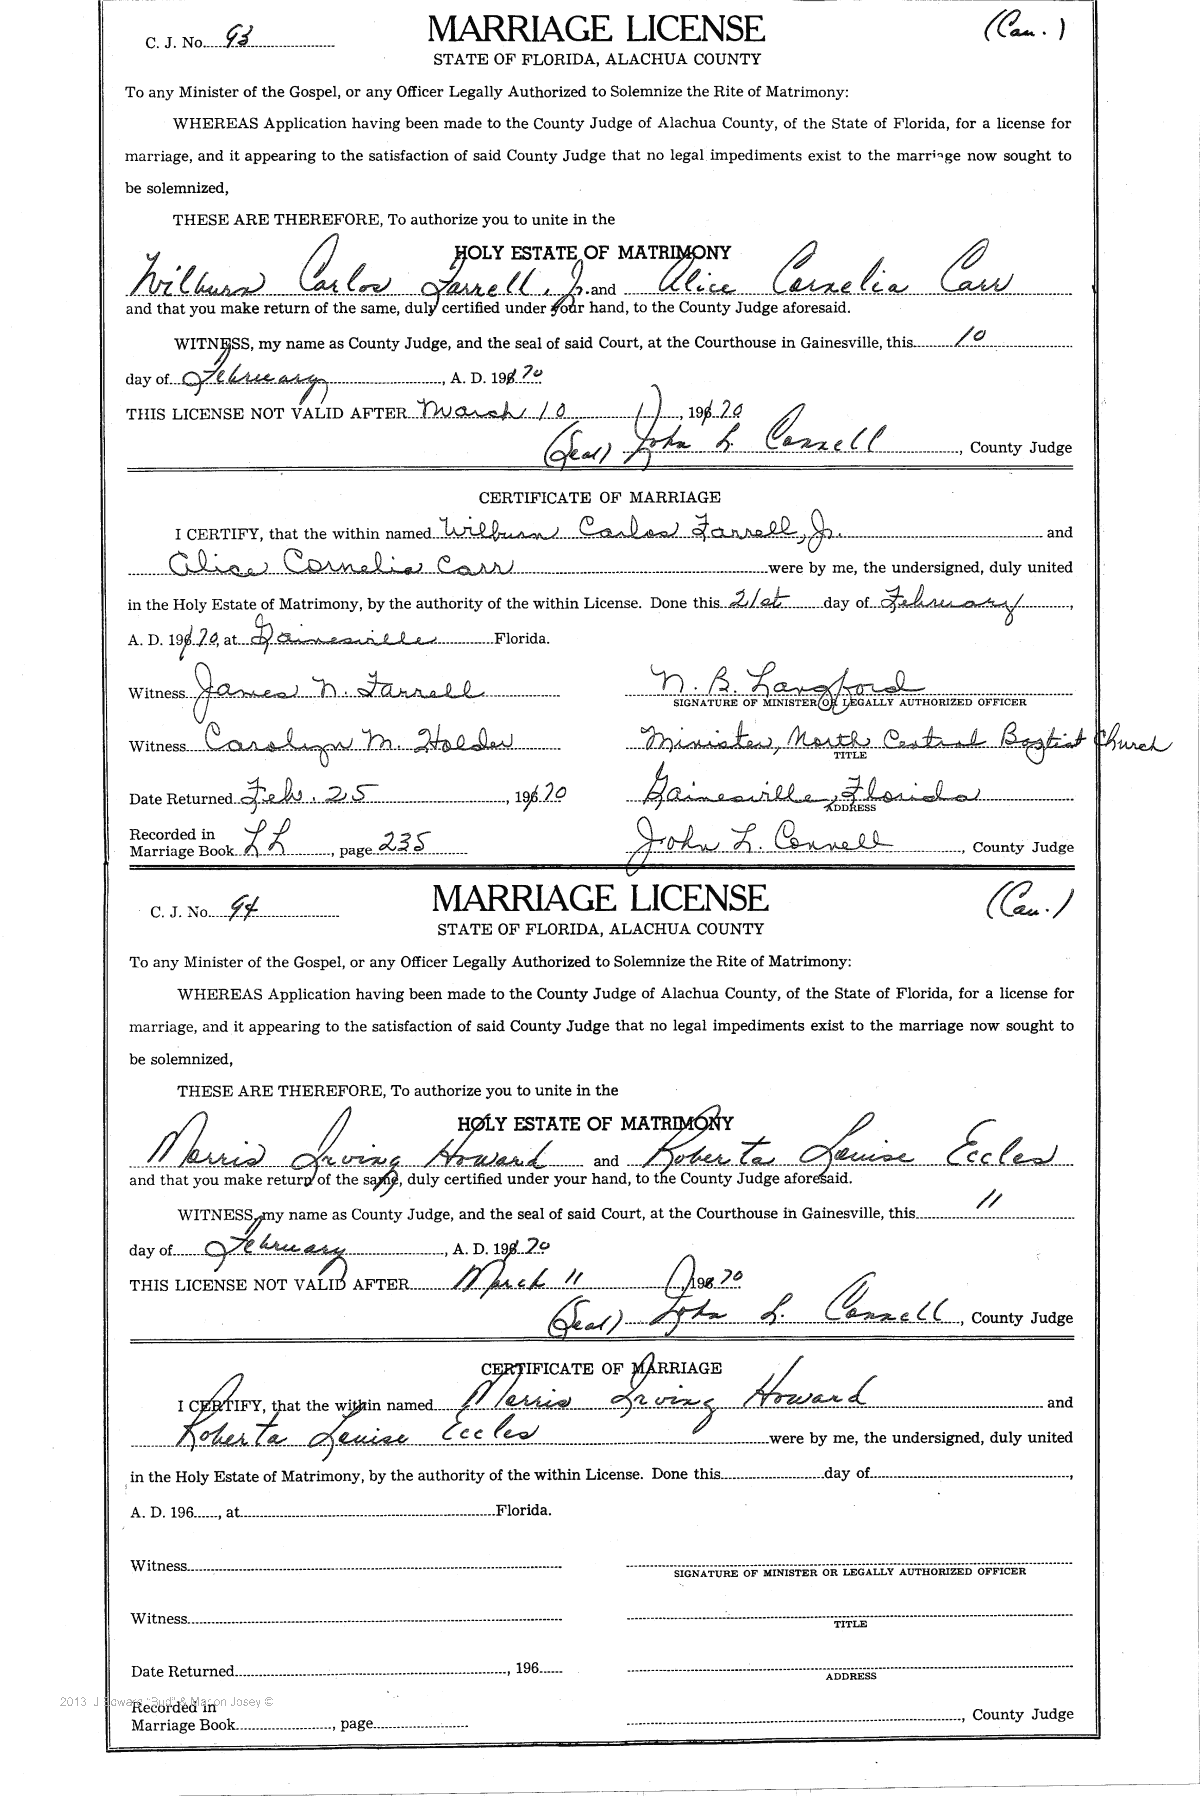 C. J. No. 93 MARRIAGE LICENSE (Cau.)
STATE OF FLORIDA, ALACHUA COUNTY
To any Minister of the Gospel, or any Officer Legally Authorized to Solemnize the Rite of Matrimony:
WHEREAS Application having been made to the County Judge of Alachua County, of the State of Florida, for a license for
marriage, and it appearing to the satisfaction of said County Judge that no legal impediments exist to the marriage now sought to
be solemnized,
THESE ARE THEREFORE, To authorize you to unite in the
HOLY ESTATE OF MATRIMONY
Wilburn Carlos Farrell, Jr. and Alice Cornelia Carr
and that you make return of the same, duly certified under your hand, to the County Judge aforesaid.
WITNESS, my name as County Judge, and the seal of said Court, at the Courthouse in Gainesville, this 10
day of February, A. D. 1970
THIS LICENSE NOT VALID AFTER March 10, 1970
(Seal) John L. Connell, County Judge
CERTIFICATE OF MARRIAGE
I CERTIFY, that the within named Wilburn Carlos Farrell, Jr. and
Alice Cornelia Carr were by me, the undersigned, duly united
in the Holy Estate of Matrimony, by the authority of the within License. Done this 21st day of February,
A. D. 1970, at Gainesville Florida.
Witness James N. Farrell N. B. Langford
SIGNATURE OF MINISTER OR LEGALLY AUTHORIZED OFFICER
Witness Carolyn M. Holder Minister, North Central Baptist Church
TITLE
Date Returned Feb. 25, 1970 Gainesville, Florida
ADDRESS
Recorded in
Marriage Book LL, page 235 John L. Connell, County Judge
C. J. No. 94 MARRIAGE LICENSE (Cau.)
STATE OF FLORIDA, ALACHUA COUNTY
To any Minister of the Gospel, or any Officer Legally Authorized to Solemnize the Rite of Matrimony:
WHEREAS Application having been made to the County Judge of Alachua County, of the State of Florida, for a license for
marriage, and it appearing to the satisfaction of said County Judge that no legal impediments exist to the marriage now sought to
be solemnized,
THESE ARE THEREFORE, To authorize you to unite in the
HOLY ESTATE OF MATRIMONY
Morris Irving Howard and Roberta Louise Eccles
and that you make return of the same, duly certified under your hand, to the County Judge aforesaid.
WITNESS, my name as County Judge, and the seal of said Court, at the Courthouse in Gainesville, this 11
day of February, A. D. 1970
THIS LICENSE NOT VALID AFTER March 11, 1970
(Seal) John L. Connell, County Judge
CERTIFICATE OF MARRIAGE
I CERTIFY, that the within named Morris Irving Howard and
Roberta Louise Eccles were by me, the undersigned, duly united
in the Holy Estate of Matrimony, by the authority of the within License. Done this day of,
A. D. 196, at Florida.
Witness
SIGNATURE OF MINISTER OR LEGALLY AUTHORIZED OFFICER
Witness
TITLE
Date Returned, 196
ADDRESS
2013 J Edward "Bud" & Mason Josey ©
Recorded in
Marriage Book, page, County Judge